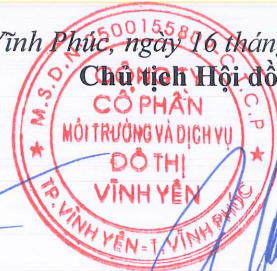 Vĩnh Phúc, ngày 16 tháng
Chủ tịch Hội đồ
M.S.D.N:2500155
C.T.C.P
CỔ PHẦN
MÔI TRƯỜNG VÀ DỊCH VỤ
ĐÔ THỊ
VĨNH YÊN
TP.VĨNH YÊN-T.VĨNH PHÚC